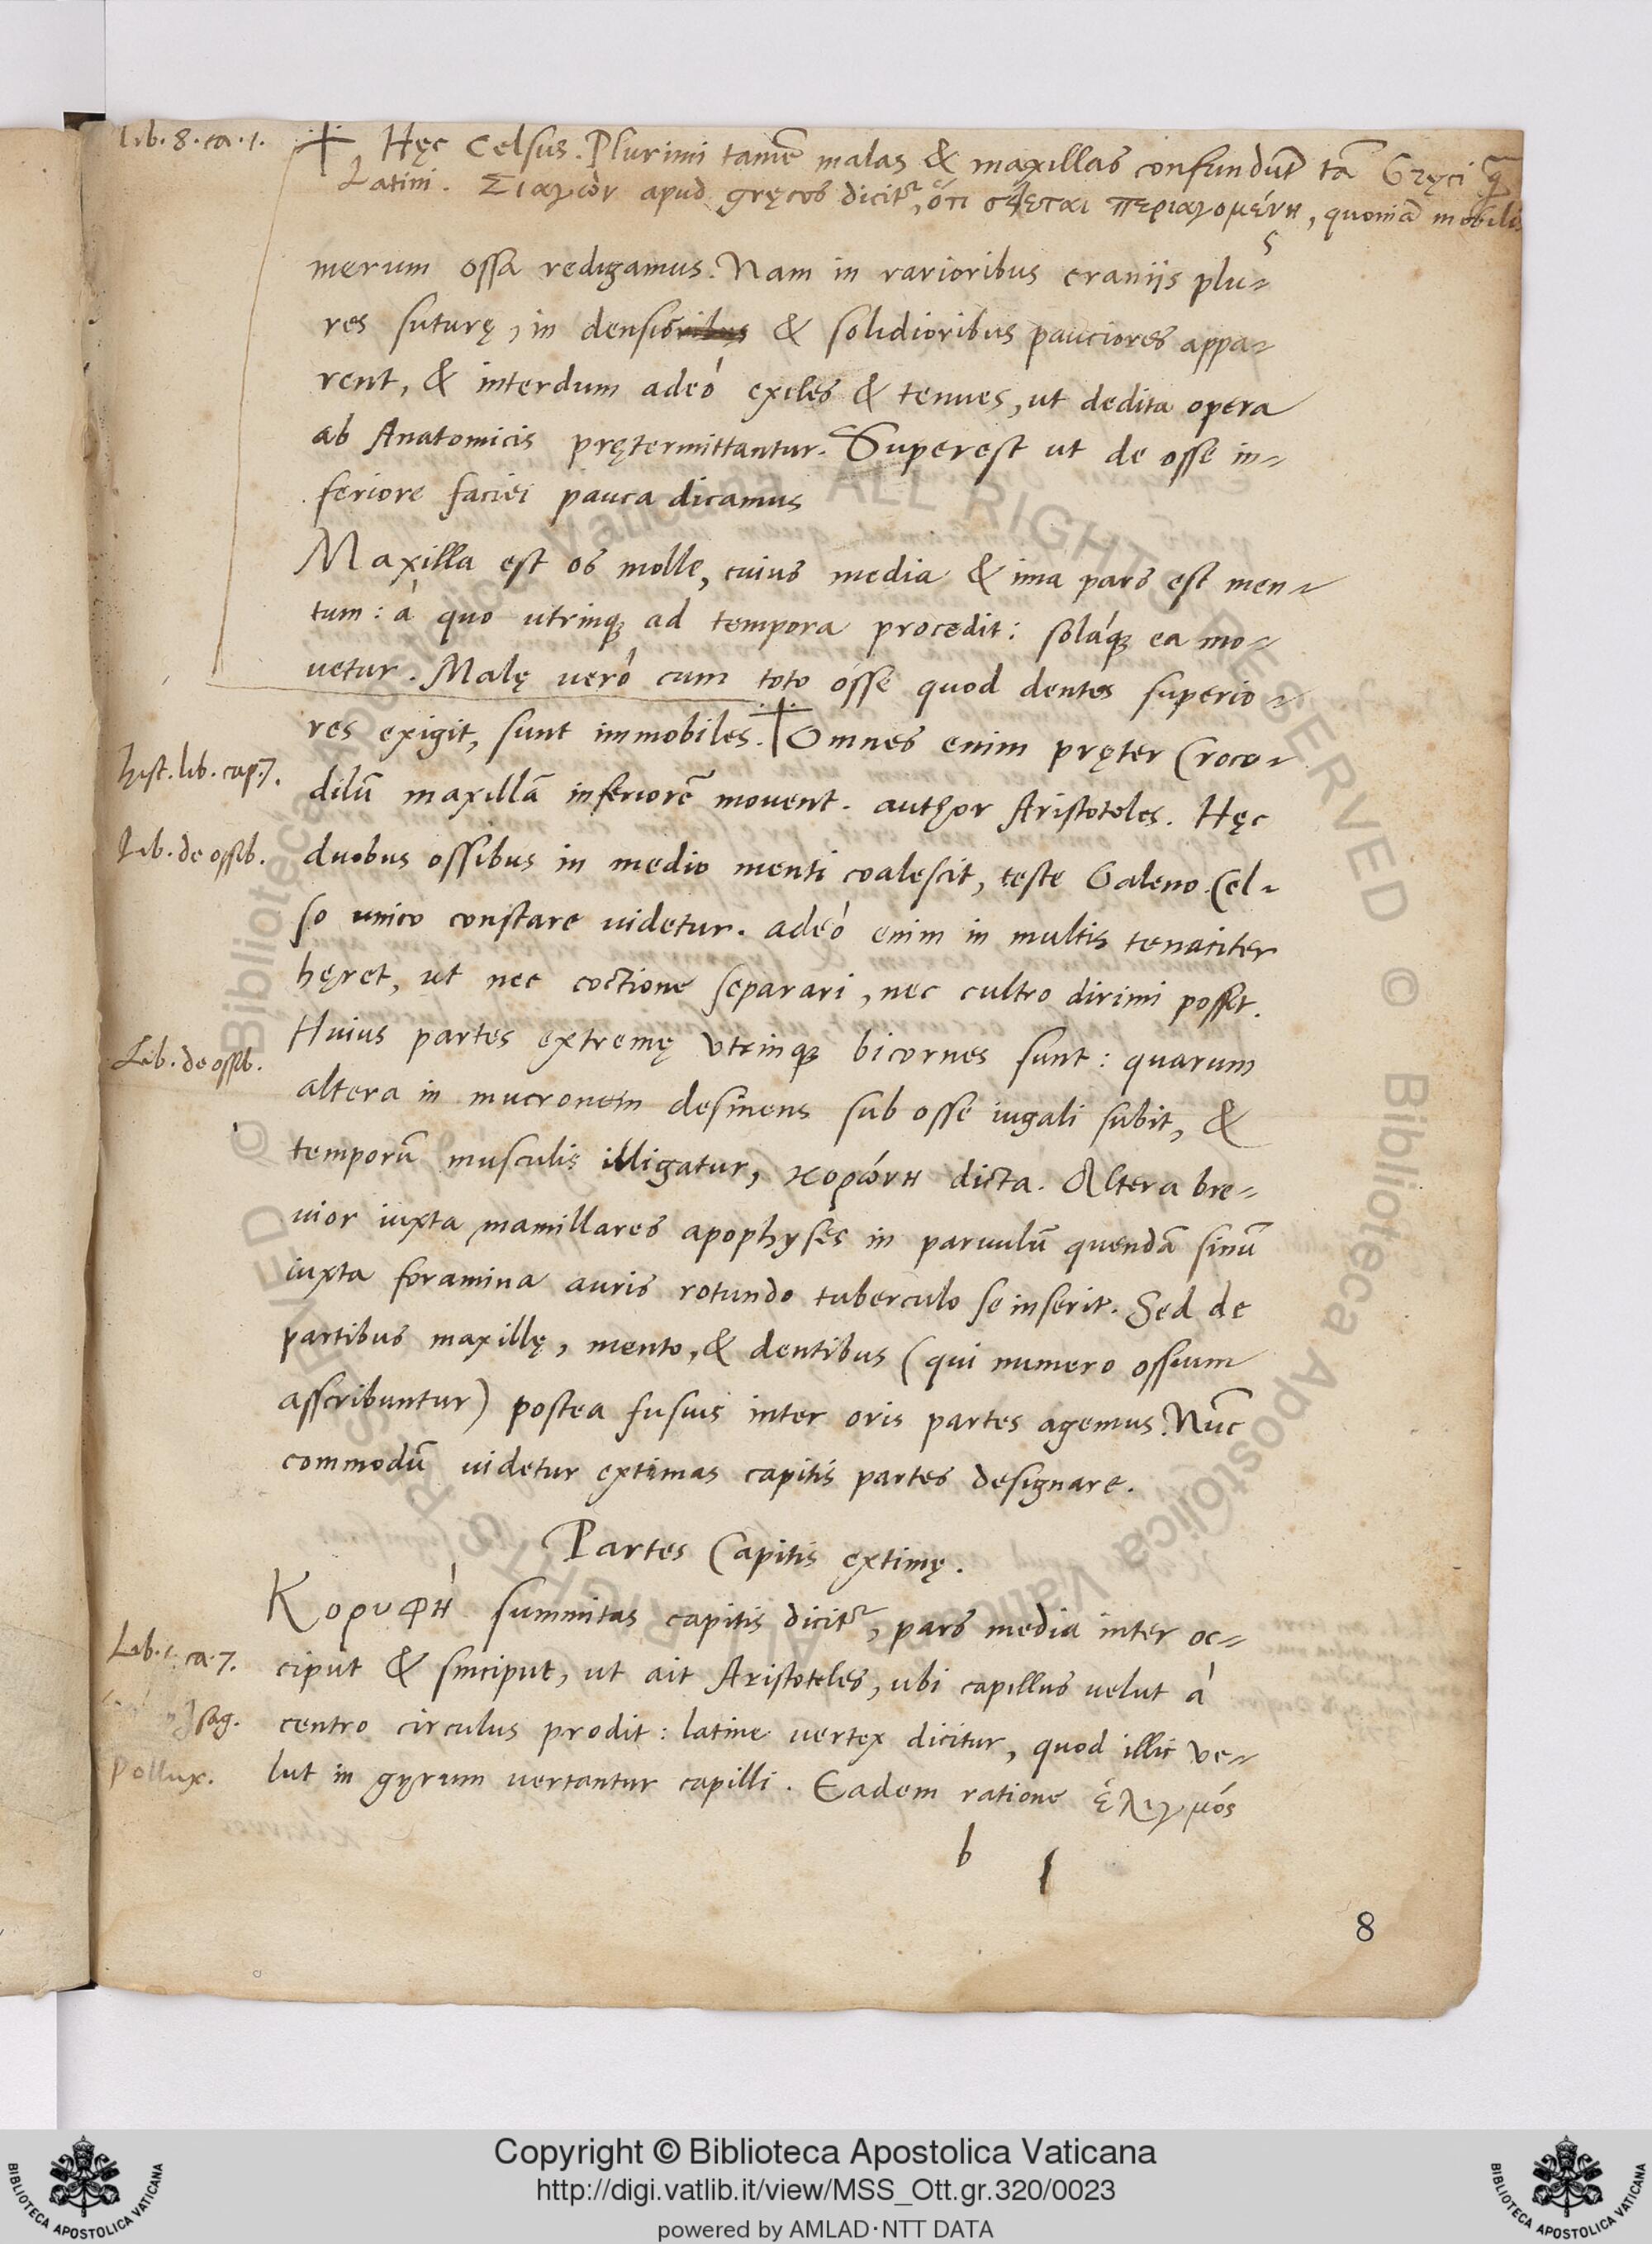 Lib. 8. ca. 1.
☩ Hęc Celsus. Plurimi tamē malas & maxillas confundūt tā Gręci q̄
Latini. Σιαγὼν apud gręcos dicitr, ὅτι σείεται περιαγομένη, quoniā mobilis
5
merum ossa redigamus. Nam in rarioribus craniis plu-
res suturę, in densioribus & solidioribus pauciores appa-
rent, & interdum adeò exiles & tenues, ut dedita opera
ab Anatomicis prętermittantur. Superest ut de osse in-
feriore faciei pauca dicamus
Maxilla est os molle, cuius media & ima pars est men-
tum: à quo utrinq; ad tempora procedit: soláq; ea mo-
uetur. Malę verò cum toto osse quod dentes superio-
res exigit, sunt immobiles. ☩ Omnes enim pręter Croco-
Hist. lib. cap. 7.
dilū maxillā inferiorē movent. author Aristoteles. Hęc
Lib. de ossib.
duobus ossibus in medio menti coalescit, teste Galeno. Cel-
so unico constare uidetur. adeò enim in multis tenaciter
hęret, ut nec coctione separari, nec cultro dirimi posset.
Huius partes extremę utrinq; bicornes sunt: quarum
Lib. de ossib.
altera in mucronem desinens sub osse iugali subit, &
temporū musculis illigatur, κορώνη dicta. Altera bre-
uior iuxta mamillares apophyses in paruulū quendā sinū
iuxta foramina auris rotundo tuberculo se inserit. Sed de
partibus maxillę, mento, & dentibus (qui numero ossium
asscribuntur) postea fusius inter oris partes agemus. Nūc
commodū uidetur extimas capitis partes designare.
Partes Capitis extimę.
Κορυφὴ summitas capitis dicitr, pars media inter oc-
Lib. 1. ca. 7.
ciput & sinciput, ut ait Aristoteles, ubi capillus velut à
Isag.
centro circulus prodit: latine vertex dicitur, quod illic ve-
Pollux.
lut in gyrum vertantur capilli. Eadem ratione ἑλιγμός
b 1
8
Copyright © Biblioteca Apostolica Vaticana
http://digi.vatlib.it/view/MSS_Ott.gr.320/0023
powered by AMLAD·NTT DATA
BIBLIOTECA APOSTOLICA VATICANA
BIBLIOTECA APOSTOLICA VATICANA